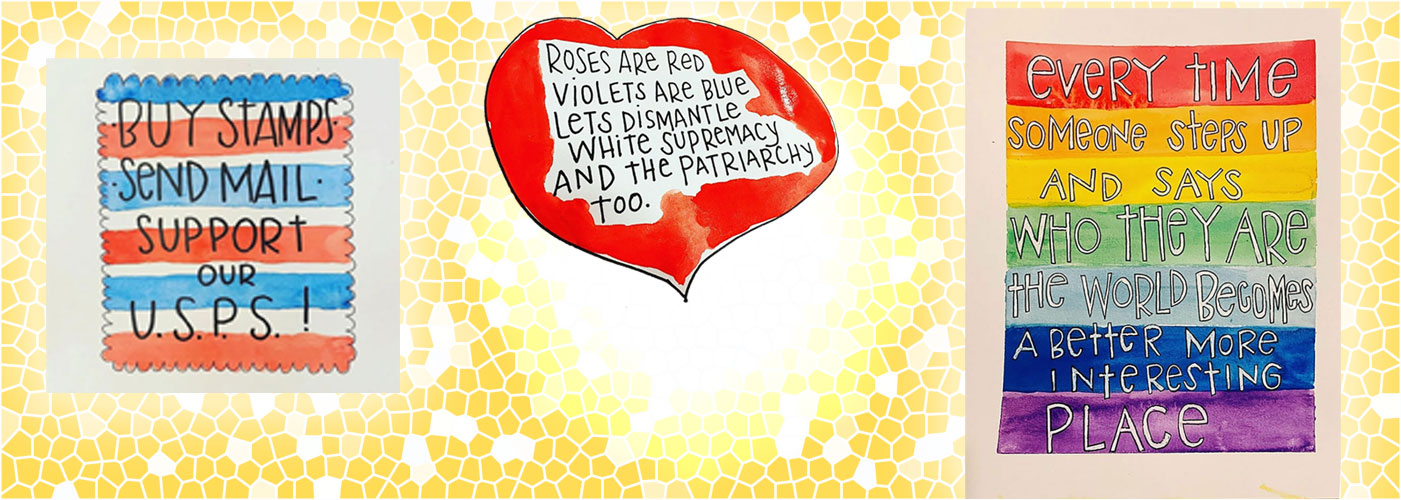 BUY STAMPS·
·SEND MAIL·
SUPPORT
OUR
U.S.P.S.!
ROSES ARE RED
VIOLETS ARE BLUE
LETS DISMANTLE
WHITE SUPREMACY
AND THE PATRIARCHY
TOO.
EVERY TIME
SOMEONE STEPS UP
AND SAYS
WHO THEY ARE
THE WORLD BECOMES
A BETTER MORE
INTERESTING
PLACE